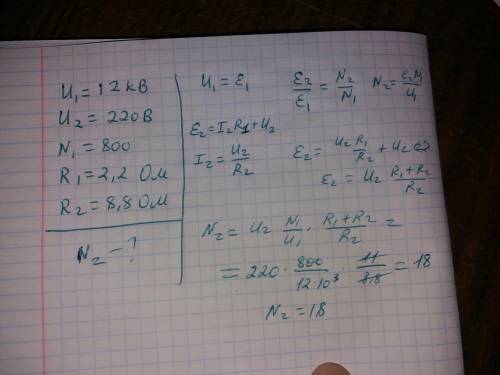 U₁ = 12 кВ
U₂ = 220 В
N₁ = 800
R₁ = 2,2 Ом
R₂ = 8,8 Ом
N₂ - ?
U₁ = ε₁
ε₂/ε₁ = N₂/N₁
N₂ = ε₂N₁/U₁
ε₂ = I₂R₁ + U₂
I₂ = U₂/R₂
ε₂ = U₂ R₁/R₂ + U₂ ⇔
ε₂ = U₂ (R₁ + R₂)/R₂
N₂ = U₂ N₁/U₁ · (R₁ + R₂)/R₂ =
= 220 · 800/12·10³ · 11/8,8 = 18
N₂ = 18